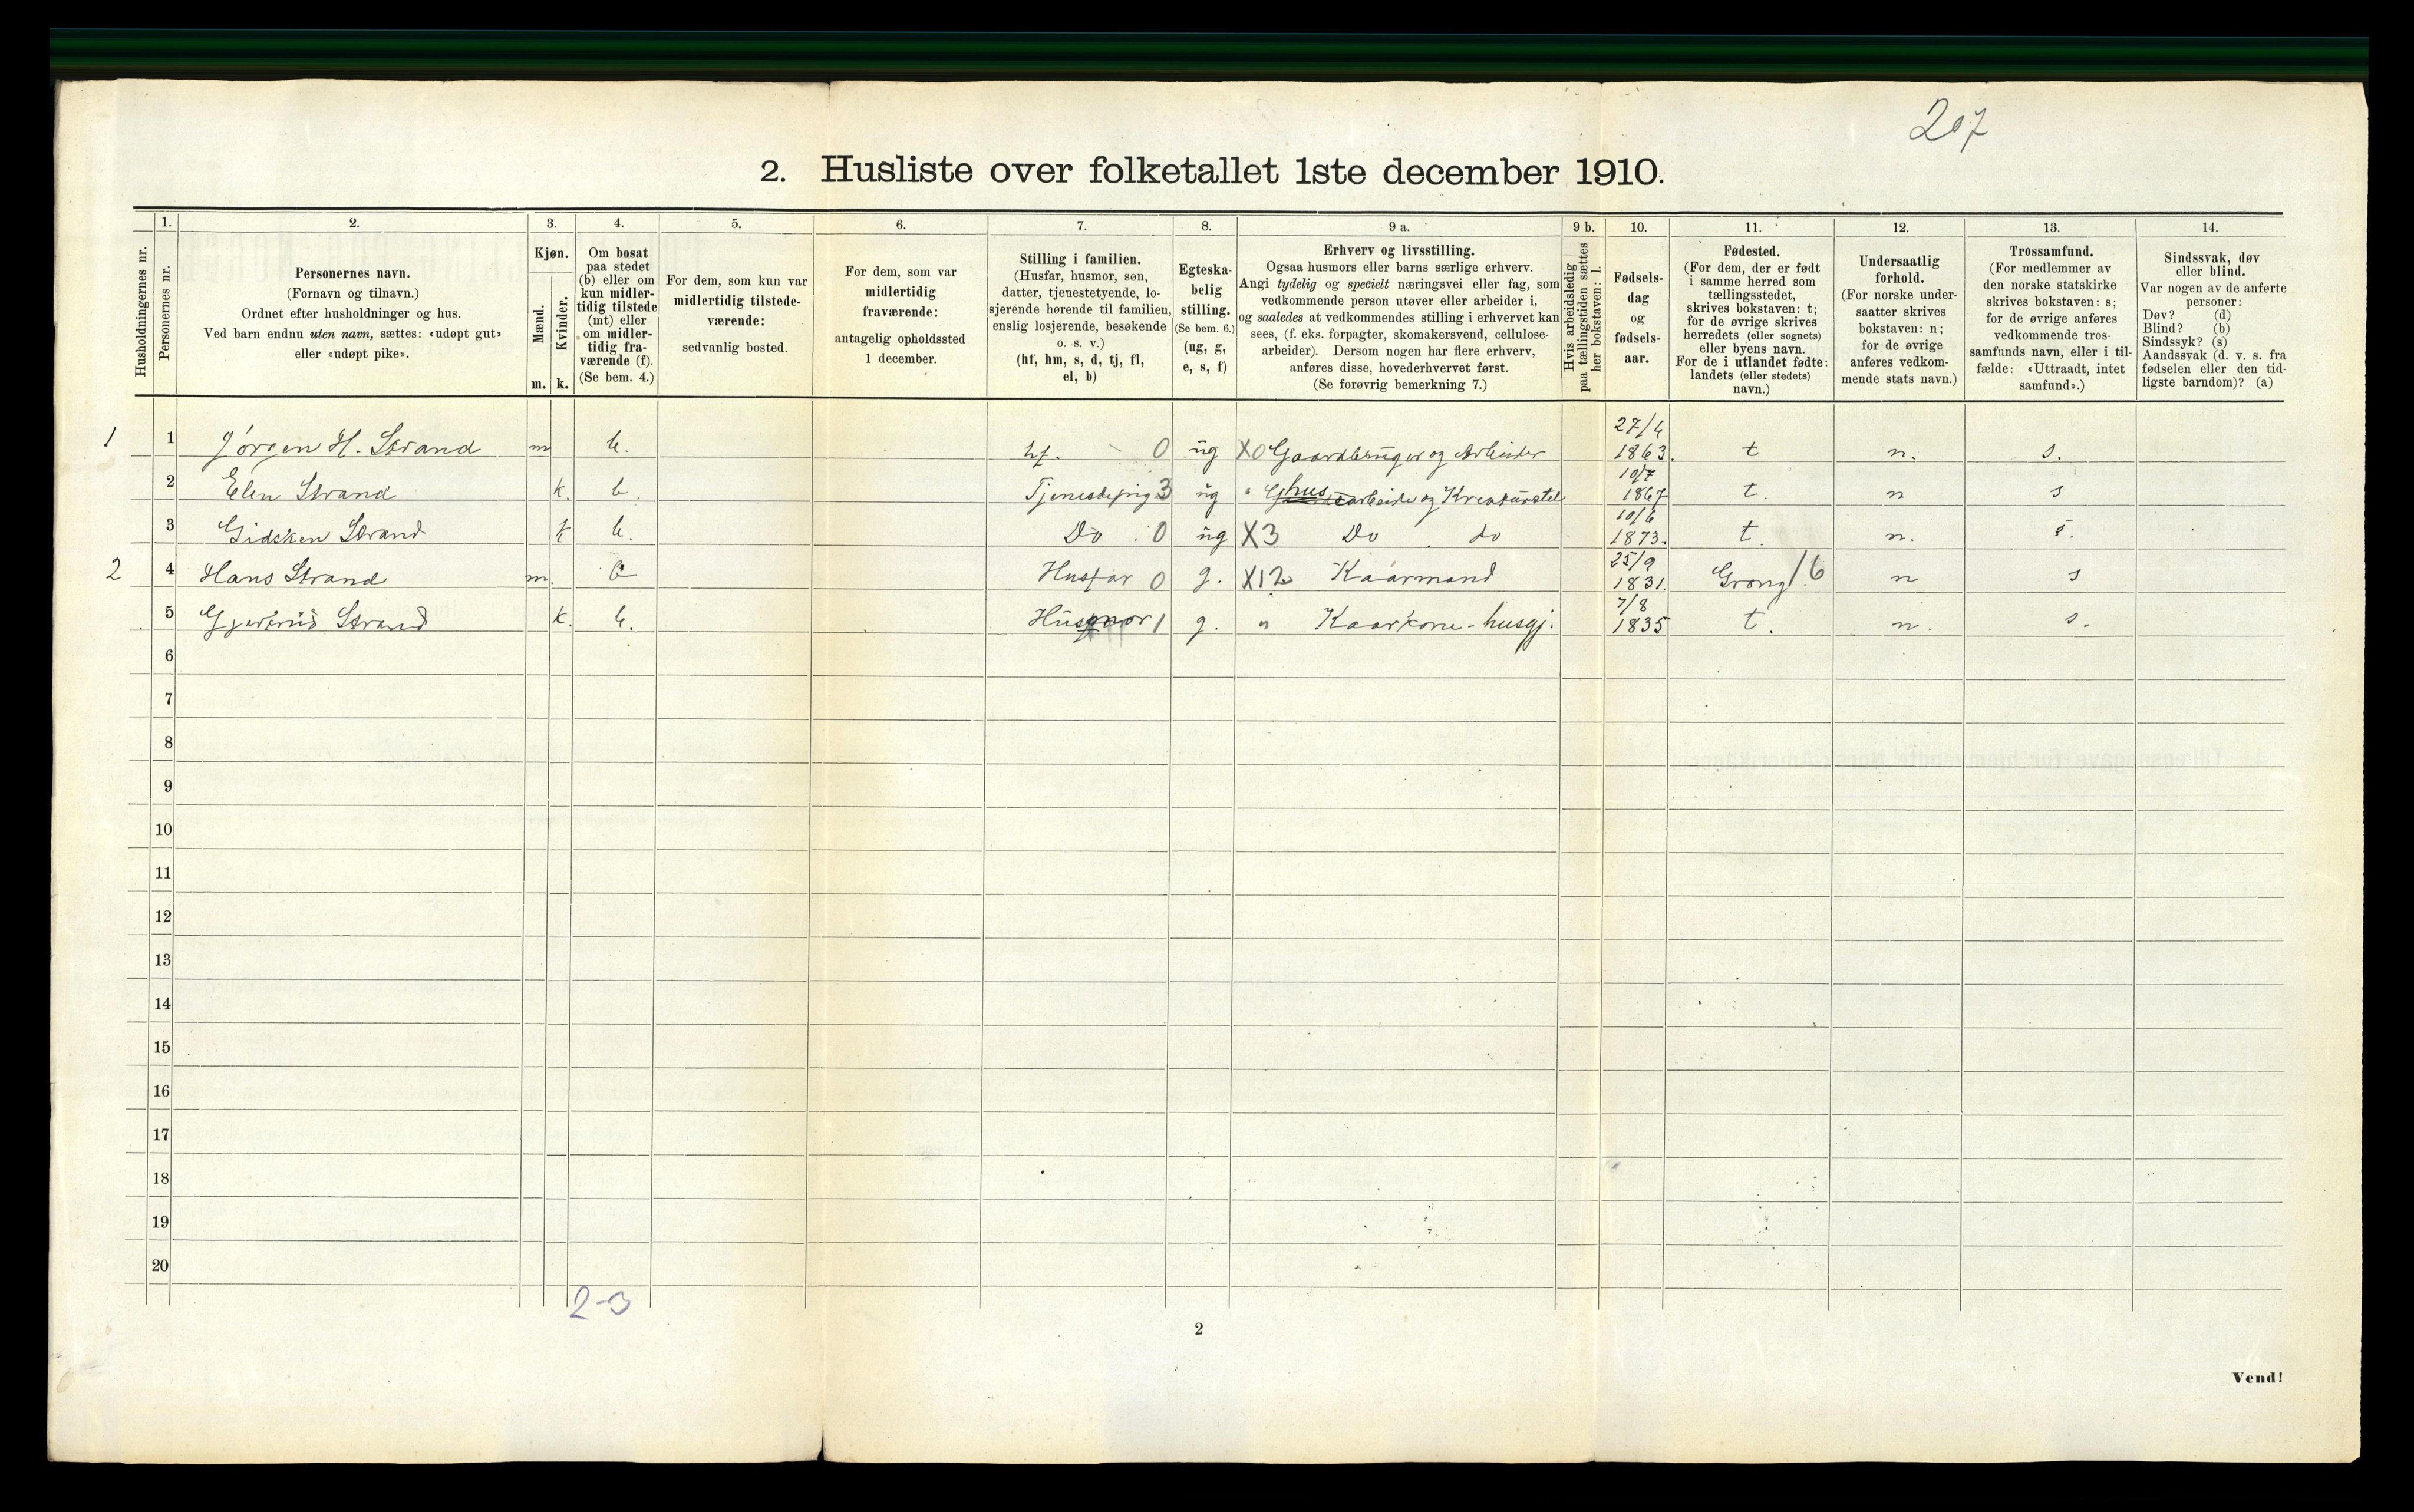 207
2. Husliste over folketallet 1ste december 1910.
Husholdningernes nr.
1.
Personernes nr.
2.
Personernes navn.
(Fornavn og tilnavn.)
Ordnet efter husholdninger og hus.
Ved barn endnu uten navn, sættes: «udøpt gut»
eller «udøpt pike».
3.
Kjøn.
Mænd.
Kvinder.
m. k.
4.
Om bosat
paa stedet
(b) eller om
kun midler-
tidig tilstede
(mt) eller
om midler-
tidig fra-
værende (f).
(Se bem. 4.)
5.
For dem, som kun var
midlertidig tilstede-
værende:
sedvanlig bosted.
6.
For dem, som var
midlertidig
fraværende:
antagelig opholdssted
1 december.
7.
Stilling i familien.
(Husfar, husmor, søn,
datter, tjenestetyende, lo-
sjerende hørende til familien,
enslig losjerende, besøkende
o. s. v.)
(hf, hm, s, d, tj, fl,
el, b)
8.
Egteska-
belig
stilling.
(Se bem. 6.)
(ug, g,
e, s, f)
9 a.
Erhverv og livsstilling.
Ogsaa husmors eller barns særlige erhverv.
Angi tydelig og specielt næringsvei eller fag, som
vedkommende person utøver eller arbeider i,
og saaledes at vedkommendes stilling i erhvervet kan
sees, (f. eks. forpagter, skomakersvend, cellulose-
arbeider). Dersom nogen har flere erhverv,
anføres disse, hovederhvervet først.
(Se forøvrig bemerkning 7.)
9 b.
Hvis arbeidsledig
paa tællingstiden sættes
her bokstaven: l.
10.
Fødsels-
dag
og
fødsels-
aar.
11.
Fødested.
(For dem, der er født
i samme herred som
tællingsstedet,
skrives bokstaven: t;
for de øvrige skrives
herredets (eller sognets)
eller byens navn.
For de i utlandet fødte:
landets (eller stedets)
navn.)
12.
Undersaatlig
forhold.
(For norske under-
saatter skrives
bokstaven: n;
for de øvrige
anføres vedkom-
mende stats navn.)
13.
Trossamfund.
(For medlemmer av
den norske statskirke
skrives bokstaven: s;
for de øvrige anføres
vedkommende tros-
samfunds navn, eller i til-
fælde: «Uttraadt, intet
samfund».)
14.
Sindssvak, døv
eller blind.
Var nogen av de anførte
personer:
Døv? (d)
Blind? (b)
Sindssyk? (s)
Aandssvak (d. v. s. fra
fødselen eller den tid-
ligste barndom)? (a)
1 1 Jørgen H. Strand m b. hf. 0 ug X0 Gaardbruger og Arbeider 27/4 1863. t n. s.
2 Elen Strand k. b. 3 ug " hus arbeide og Kreaturstel 10/7 1867 t. n s
3 Gidsken Strand k b. Do . 0 ug X3 Do . do 10/6 1873. t. n. s.
2 4 Hans Strand m. b Husfar 0 g. X12 Kaarmand 25/9 1831. Grong 16 n s
5 Gjertrud Strand k. b. Husmor 1 g. " Kaarkone - husgj. 7/8 1835 t. n. s.
6
7
8
9
10
11
12
13
14
15
16
17
18
19
20
2-3
2
Vend!